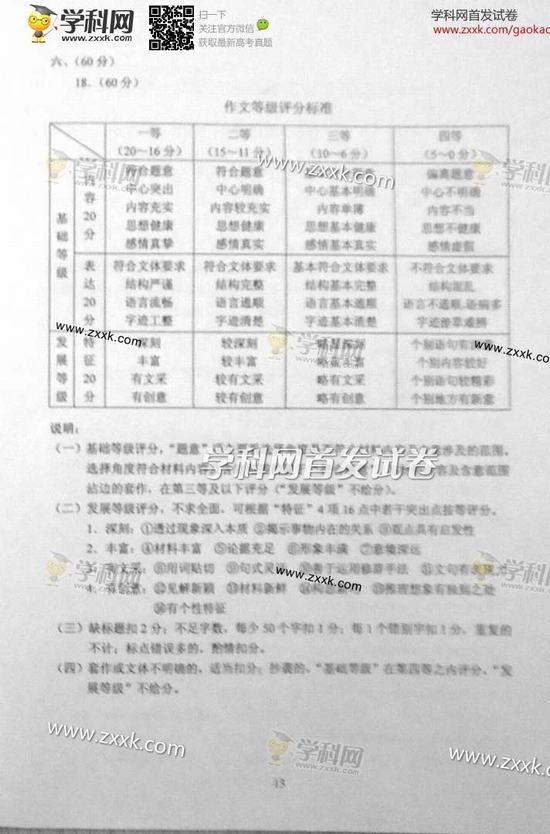 学科网
www.zxxk.com
扫一下
关注官方微信
获取最新高考真题
学科网首发试卷
www.zxxk.com/gaokao
六、(60分)
18.(60分)
作文等级评分标准
一等 二等 三等 四等
(20~16分) (15~11分) (10~6分) (5~0分)
基础等级
内容20分
符合题意 符合题意 偏离题意
中心突出 中心明确 中心基本明确 中心不明确
内容充实 内容较充实 内容单薄 内容不当
思想健康 思想健康 思想基本健康 思想不健康
感情真挚 感情真实 感情基本真实 感情虚假
表达20分
符合文体要求 符合文体要求 基本符合文体要求 不符合文体要求
结构严谨 结构完整 结构基本完整 结构混乱
语言流畅 语言通顺 语言基本通顺 语言不通顺,语病多
字迹工整 字迹清楚 字迹基本清楚 字迹潦草难辨
发展等级
特征20分
深刻 较深刻 略显深刻 个别语句有
丰富 较丰富 略显丰富 个别内容较好
有文采 较有文采 略有文采 个别语句较精彩
有创意 较有创意 略有创意 个别地方有新意
说明:
(一)基础等级评分,“题意” 涉及的范围。
选择角度符合材料内容 容及含意范围
沾边的套作,在第三等及以下评分(“发展等级”不给分)。
(二)发展等级评分,不求全面,可根据“特征”4项16点中若干突出点按等评分。
1、深刻:①透过现象深入本质 ②揭示事物内在的关系 ③观点具有启发性
2、丰富:④材料丰富 ⑤论据充足 ⑥形象丰满 ⑦意境深远
3、有文采:⑧用词贴切 ⑨句式灵 善于运用修辞手法 ⑪文句有
4、有创意:⑫见解新颖 ⑬材料新鲜 ⑭构思 ⑮推理想象有独到之处
⑯有个性特征
(三)缺标题扣2分;不足字数,每少50个字扣1分;每1个错别字扣1分,重复的
不计;标点错误多的,酌情扣分。
(四)套作或文体不明确的,适当扣分;抄袭的,“基础等级”在第四等之内评分,“发
展等级”不给分。
学科网首发试卷
13